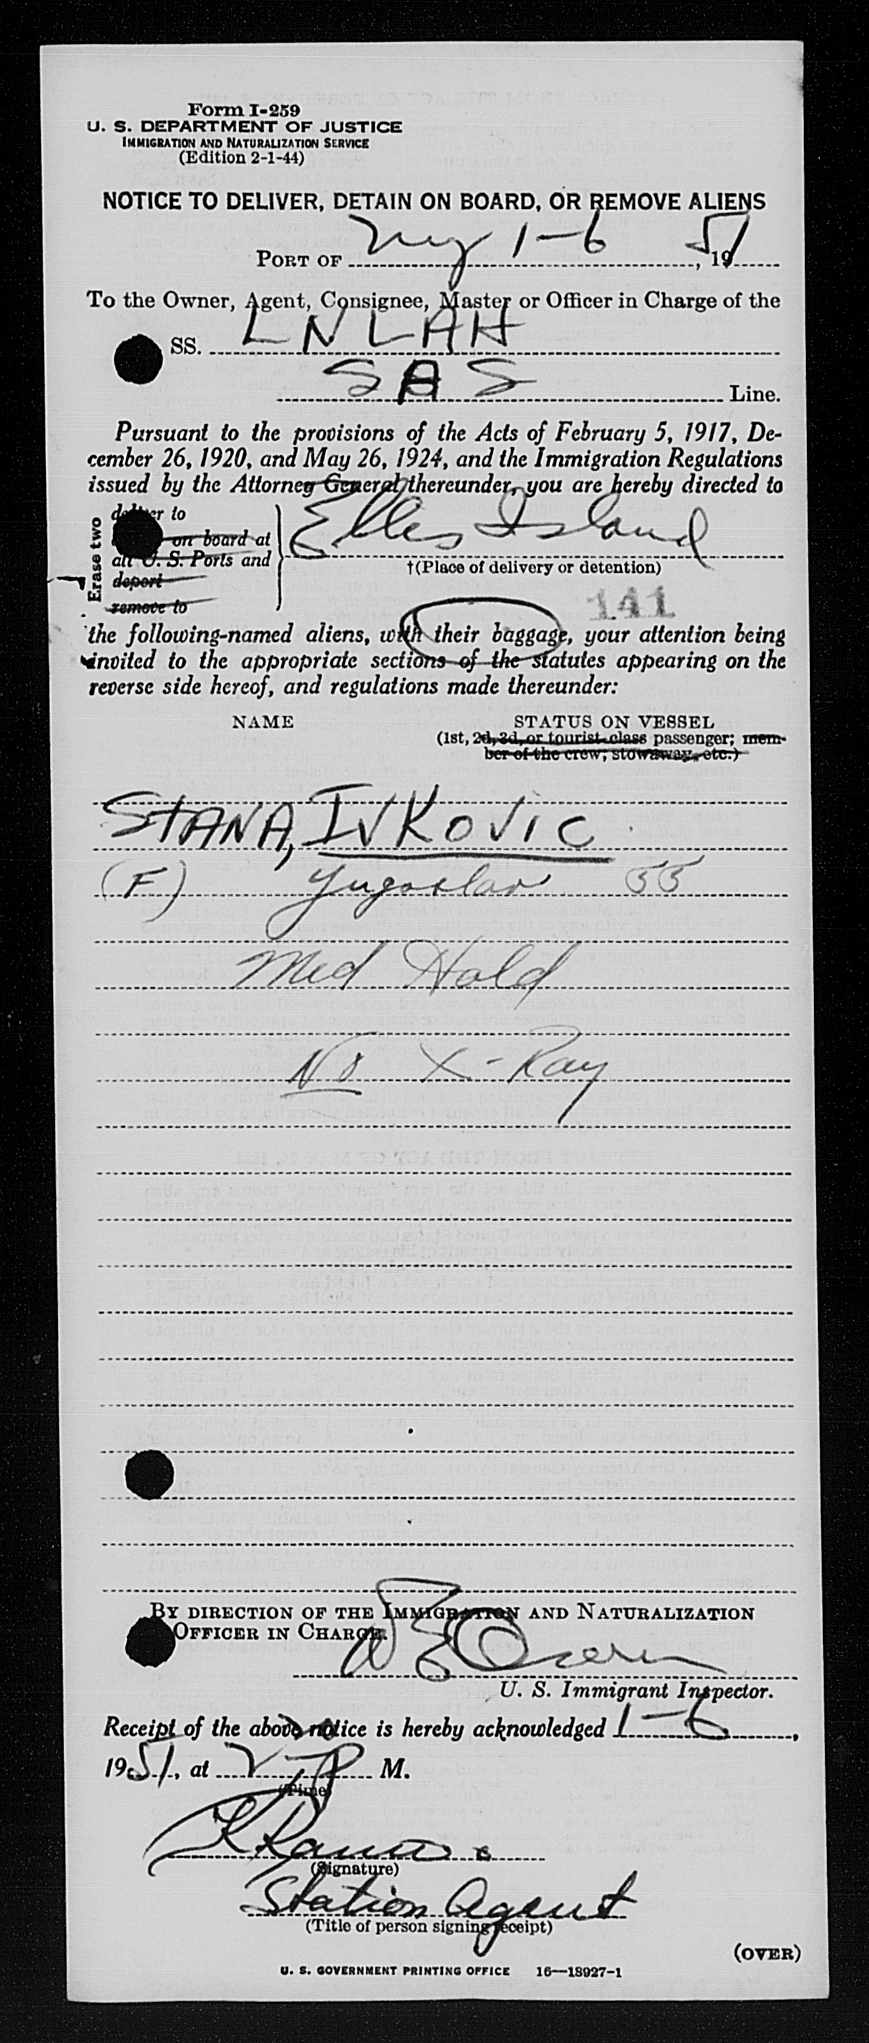 Form I-259
U. S. DEPARTMENT OF JUSTICE
IMMIGRATION AND NATURALIZATION SERVICE
(Edition 2-1-44)
NOTICE TO DELIVER, DETAIN ON BOARD, OR REMOVE ALIENS
PORT OF NY 1-6, 1951
To the Owner, Agent, Consignee, Master or Officer in Charge of the
SS. LNLAH
SAS Line.
Pursuant to the provisions of the Acts of February 5, 1917, De-
cember 26, 1920, and May 26, 1924, and the Immigration Regulations
issued by the Attorney General thereunder, you are hereby directed to
Erase two
deliver to
on board at
all U. S. Ports and
deport
remove to
Ellis Island
†(Place of delivery or detention)
141
the following-named aliens, with their baggage, your attention being
invited to the appropriate sections of the statutes appearing on the
reverse side hereof, and regulations made thereunder:
NAME STATUS ON VESSEL
(1st, 2d, 3d, or tourist-class passenger; mem-
ber of the crew; stowaway, etc.)
STANA, IVKOVIC
(F) Yugoslav 55
Med Hold
No X-Ray
BY DIRECTION OF THE IMMIGRATION AND NATURALIZATION
OFFICER IN CHARGE.
U. S. Immigrant Inspector.
Receipt of the above notice is hereby acknowledged 1-6,
1951, at P M.
(Time)
(Signature)
Station Agent
(Title of person signing receipt)
(OVER)
U. S. GOVERNMENT PRINTING OFFICE 16—18927-1